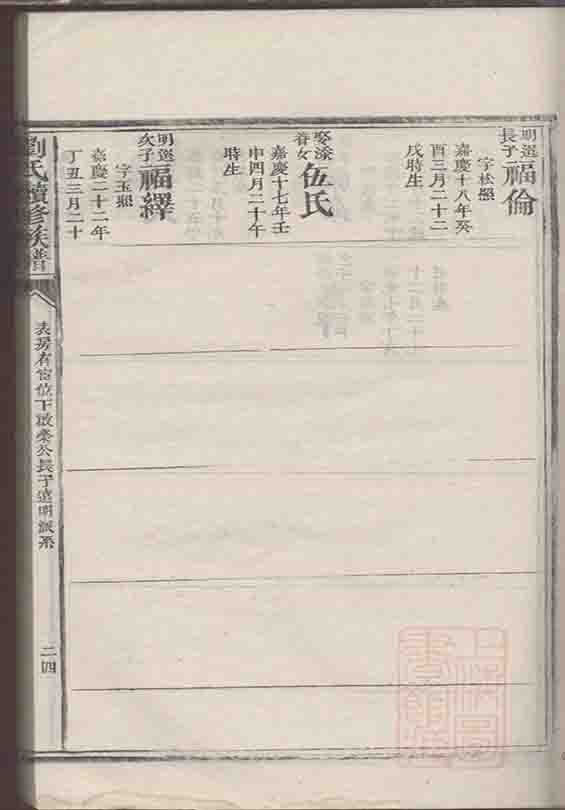 明選
長子
福倫
字松照
嘉慶十八年癸
酉三月二十二
戌時生
娶漆
眷女
伍氏
嘉慶十七年壬
申四月二十午
時生
明選
次子
福繹
字玉照
嘉慶二十二年
丁丑三月二十
劉氏續修族譜
表房有富位下啟泰公長子遠明派系
二四
上海圖
書館藏